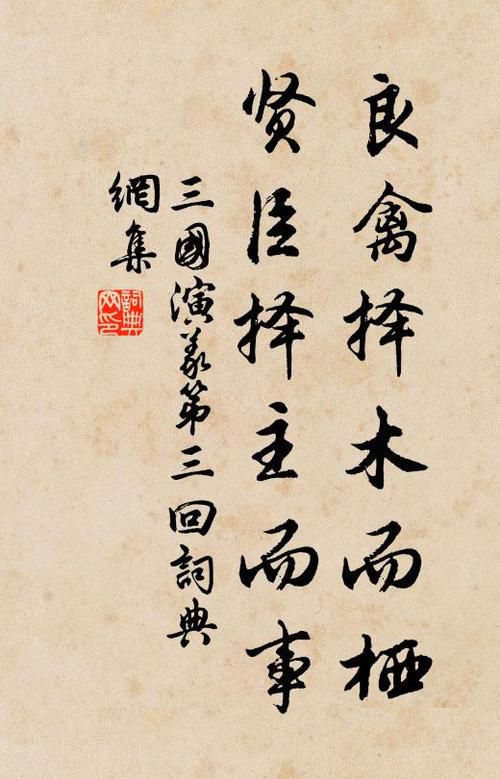 良禽择木而栖
贤臣择主而事
三國演义第三回詞典
網集
詞典网印